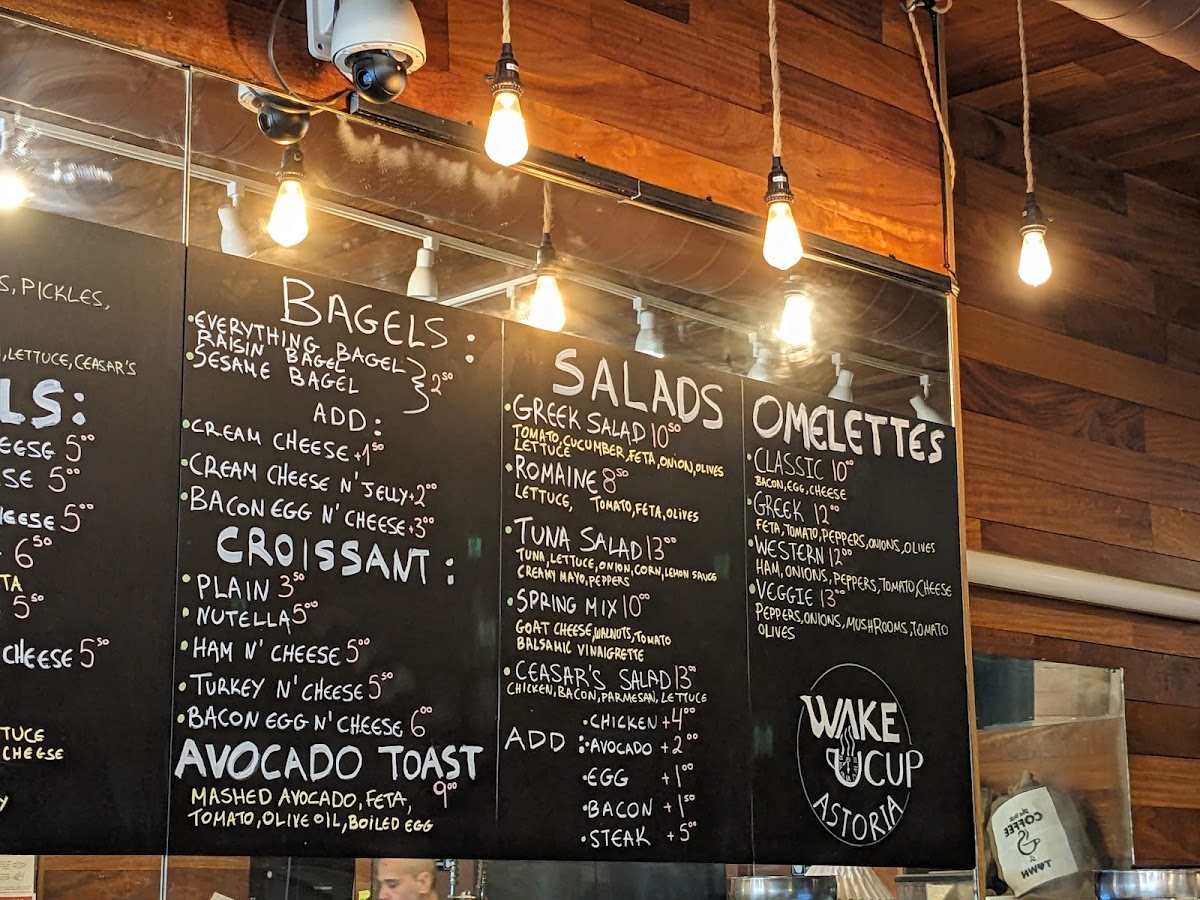 S, PICKLES,
, LETTUCE, CEASAR'S
LS:
EESE 5⁰⁰
SE 5⁰⁰
HEESE 5⁰⁰
6⁵⁰
TA
5⁵⁰
CHEESE 5⁵⁰
TUCE
CHEESE
Y
BAGELS:
•EVERYTHING BAGEL
RAISIN BAGEL
•SESAME BAGEL
2⁵⁰
ADD:
•CREAM CHEESE +1⁵⁰
•CREAM CHEESE N' JELLY +2⁰⁰
•BACON EGG N' CHEESE +3⁰⁰
CROISSANT:
•PLAIN 3⁵⁰
•NUTELLA 5⁰⁰
•HAM N' CHEESE 5⁰⁰
•TURKEY N' CHEESE 5⁵⁰
•BACON EGG N' CHEESE 6⁰⁰
AVOCADO TOAST
9⁰⁰
MASHED AVOCADO, FETA,
TOMATO, OLIVE OIL, BOILED EGG
SALADS
•GREEK SALAD 10⁵⁰
TOMATO, CUCUMBER, FETA, ONION, OLIVES
LETTUCE
•ROMAINE 8⁵⁰
LETTUCE, TOMATO, FETA, OLIVES
•TUNA SALAD 13⁰⁰
TUNA, LETTUCE, ONION, CORN, LEMON SAUCE
CREAMY MAYO, PEPPERS
•SPRING MIX 10⁰⁰
GOAT CHEESE, WALNUTS, TOMATO
BALSAMIC VINAIGRETTE
•CEASAR'S SALAD 13⁰⁰
CHICKEN, BACON, PARMESAN, LETTUCE
ADD :
•CHICKEN +4⁰⁰
•AVOCADO +2⁰⁰
•EGG +1⁰⁰
•BACON +1⁵⁰
•STEAK +5⁰⁰
OMELETTES
•CLASSIC 10⁰⁰
BACON, EGG, CHEESE
•GREEK 12⁰⁰
FETA, TOMATO, PEPPERS, ONIONS, OLIVES
•WESTERN 12⁰⁰
HAM, ONIONS, PEPPERS, TOMATO, CHEESE
•VEGGIE 13⁰⁰
PEPPERS, ONIONS, MUSHROOMS, TOMATO
OLIVES
WAKE
UCUP
ASTORIA
COFFEE
TOWN